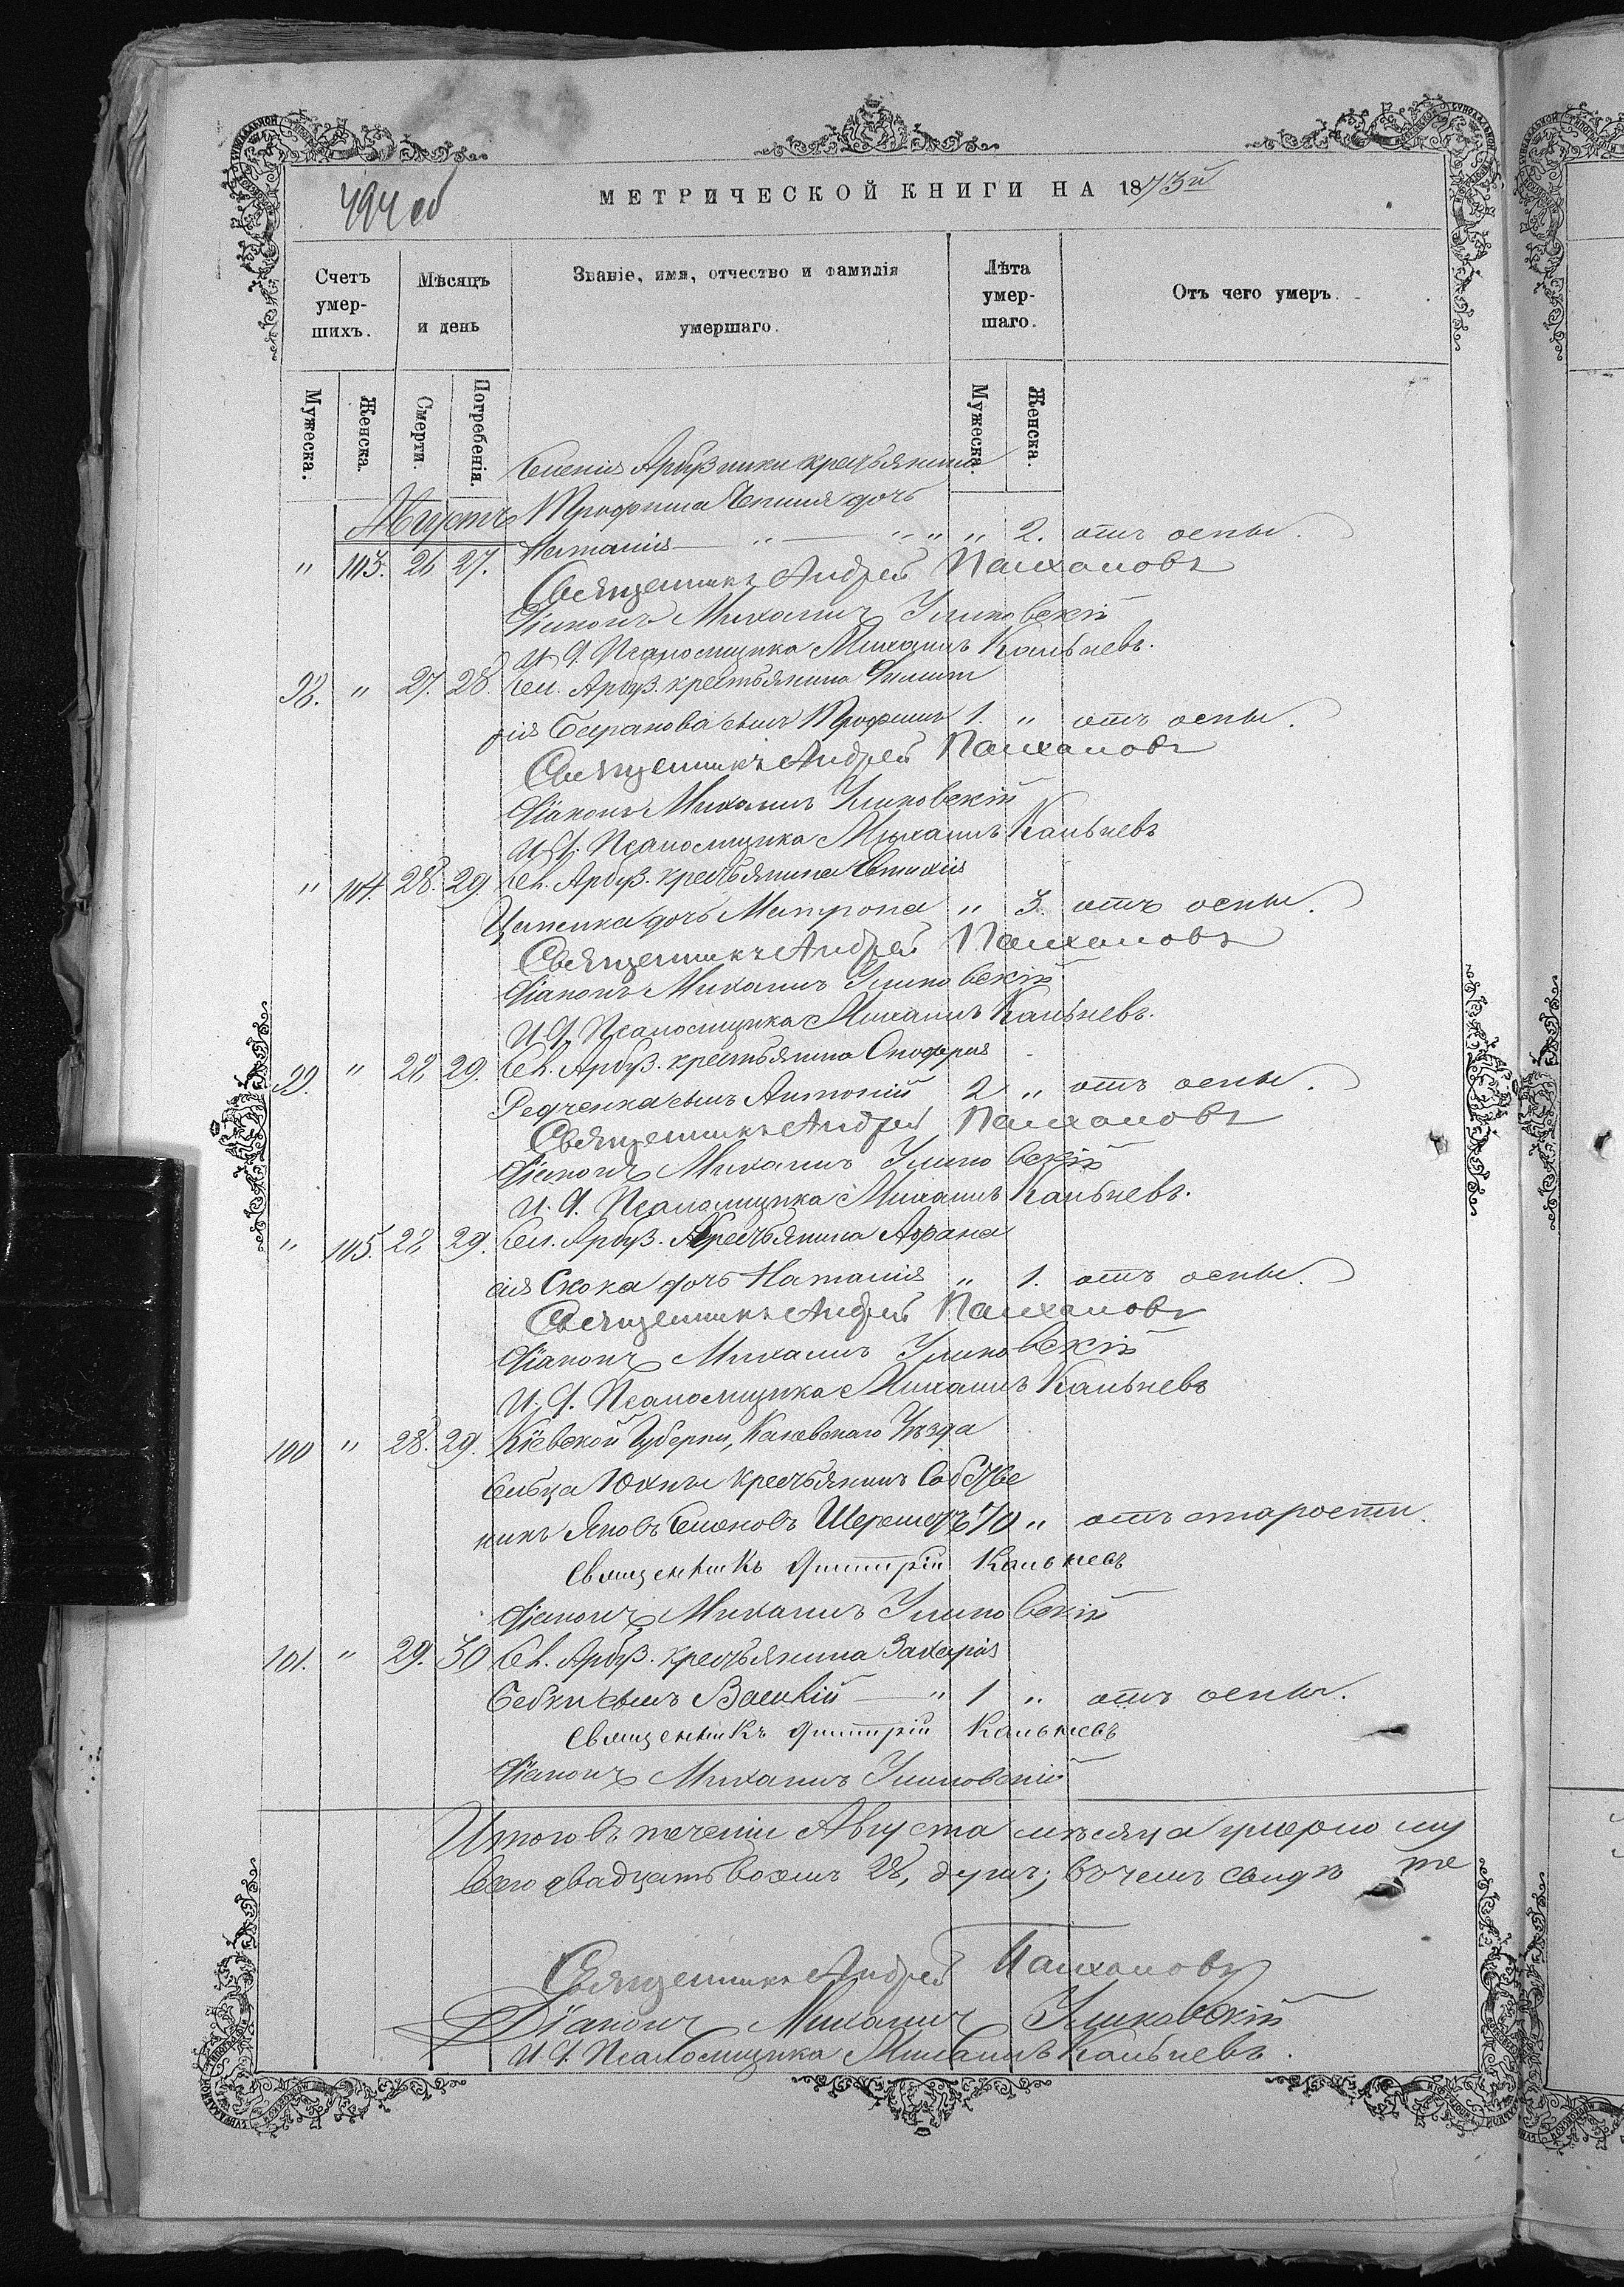 494 об
МЕТРИЧЕСКОЙ КНИГИ НА 1873й
Счетъ умершихъ.
Мѣсяцъ и день
Званіе, имя, отчество и фамилія умершаго.
Лѣта умершаго.
Отъ чего умеръ.
Мужеска.
Женска.
Смерти.
Погребенія.
Мужеска.
Женска.
Августъ
Селенія Арбузинки крестьянина
Трофима дочь
" 103. 26 27. Наталія " " 2. отъ оспы.
Священникъ Андрей
Діаконъ Михаилъ
И. Д. Псаломщика Михаилъ Кальневъ.
98. " 27. 28. Сел. Арбуз. крестьянина Филип
Баранова сынъ Трофимъ 1. " отъ оспы.
Священникъ Андрей
Діаконъ Михаилъ
И. Д. Псаломщика Михаилъ Кальневъ
" 104. 28. 29. Сел. Арбуз. крестьянина Евтихія
дочь Матрона " 3. отъ оспы.
Священникъ Андрей
Діаконъ Михаилъ
И. Д. Псаломщика Михаилъ Кальневъ.
99. " 28 29. Сел. Арбуз. крестьянина Онофрия
Редченка сынъ Антоній 2 " отъ оспы.
Священникъ Андрей
Діаконъ Михаилъ
И. Д. Псаломщика Михаилъ Кальневъ.
" 105. 28 29. Сел. Арбуз. Крестьянина Афана
сія Скока дочь Наталія " 1. отъ оспы.
Священникъ Андрей
Діаконъ Михаилъ
И. Д. Псаломщика Михаилъ Кальневъ
100 " 28. 29. Кіевской Губерніи, Каневскаго Уѣзда
Сельца Юхны крестьянинъ Собстве
никъ Яковъ Шереметъ 70 " отъ старости.
Священникъ Димитрій Кальневъ
Діаконъ Михаилъ
101. " 29. 30 Сел. Арбуз. крестьянина Захарія
сынъ Василій " 1 " отъ оспы.
Священникъ Димитрій Кальневъ
Діаконъ Михаилъ
Итого въ теченіи Августа мѣсяца умерло му
всего двадцать восемь 28, душъ; въ чемъ свидѣ те
Священникъ Андрей
Діаконъ Михаилъ
И. Д. Псаломщика Михаилъ Кальневъ.